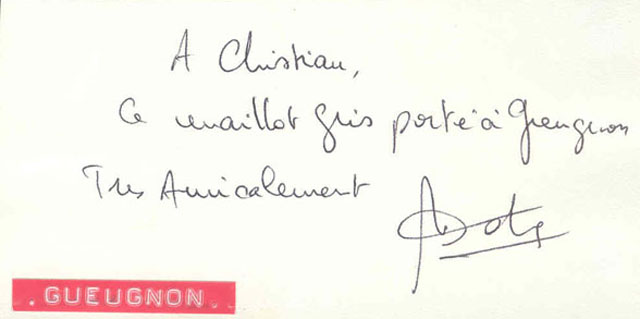 A Christian,
Ce maillot gris porté à Gueugnon
Tres Amicalement
.GUEUGNON..